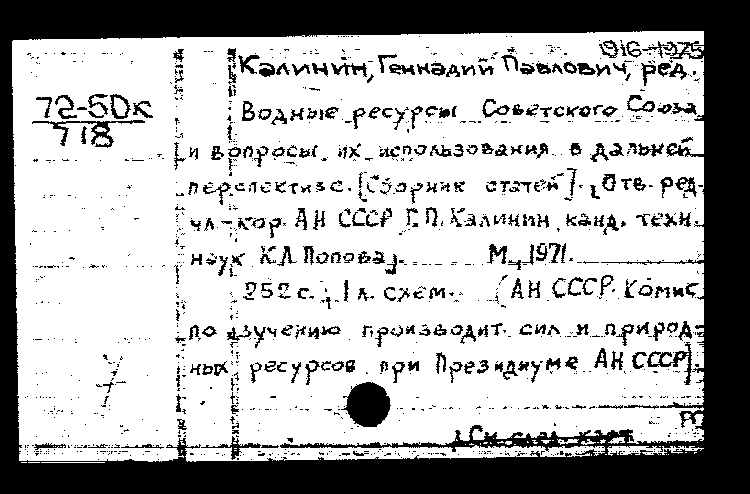 1916-1975
Калинин, Геннадий Павлович, ред.
72-50к
718
Водные ресурсы Советского Союза
и вопросы их использования в дальней
перспективе. [Сборник статей]. [Отв. ред.
чл-кор. АН СССР Г.П. Калинин, канд. техн.
наук К.Л Попова]. М., 1971.
252 с.; 1 л. схем. (АН СССР. Комис
по изучению производит. сил и природ-
ных ресурсов при Президиуме АН СССР).
См. след. карт